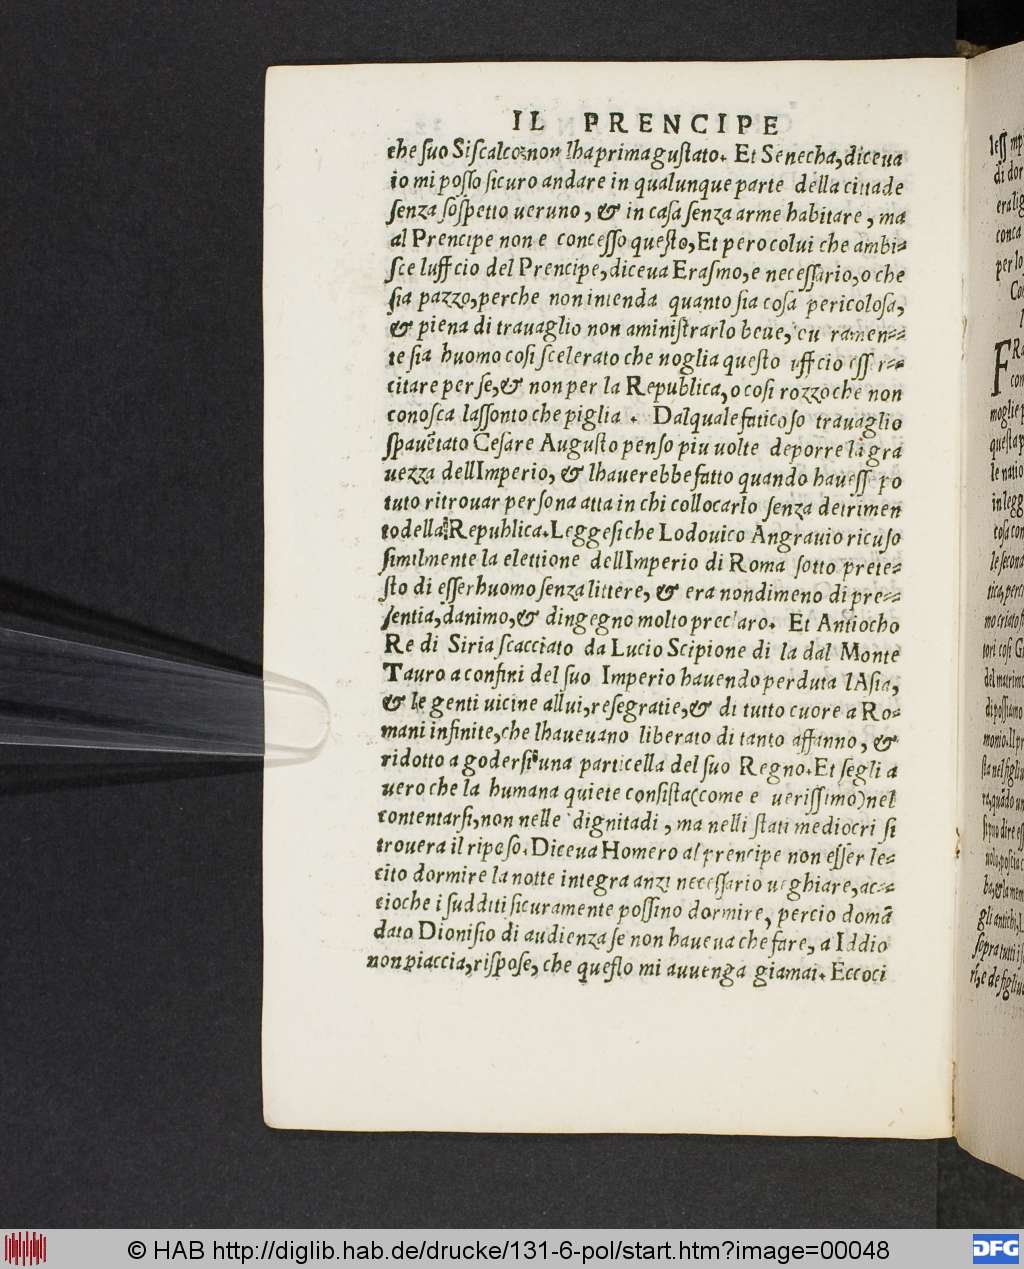 IL PRENCIPE
che suo Siscalco non lha prima gustato. Et Senecha, diceua
io mi posso sicuro andare in qualunque parte della cittade
senza sospetto ueruno, & in casa senza arme habitare, ma
al Prencipe non e concesso questo, Et pero colui che ambi-
sce luffcio del Prencipe, diceua Erasmo, e necessario, o che
sia pazzo, perche non intenda quanto sia cosa pericolosa,
& piena di trauaglio non aministrarlo bene, ramen-
te sia huomo cosi scelerato che uoglia questo uffcio esser-
citare per se, & non per la Republica, o cosi rozzo che non
conosca lassonto che piglia. Dal quale faticoso trauaglio
spauẽtato Cesare Augusto penso piu uolte deporre la gra
uezza dellImperio, & lhauerebbe fatto quando hauesse po
tuto ritrouar persona atta in chi collocarlo senza detrimen
to della Republica. Leggesi che Lodouico Angrauio ricuso
similmente la elettione dellImperio di Roma sotto prete-
sto di esser huomo senza littere, & era nondimeno di pre-
sentia, danimo, & dingegno molto preclaro. Et Antiocho
Re di Siria scacciato da Lucio Scipione di la dal Monte
Tauro a confini del suo Imperio hauendo perduta lAsia,
& le genti uicine allui, rese gratie, & di tutto cuore a Ro-
mani infinite, che lhaueuano liberato di tanto affanno, &
ridotto a godersi una particella del suo Regno. Et segli a
uero che la humana quiete consista (come e uerissimo) nel
contentarsi, non nelle dignitadi, ma nelli stati mediocri si
trouera il riposo. Diceua Homero al prencipe non esser le-
cito dormire la notte integra anzi necessario ueghiare, ac-
cioche i sudditi sicuramente possino dormire, percio domã
dato Dionisio di audienza se non haueua che fare, a Iddio
non piaccia, rispose, che questo mi auuenga giamai. Eccoci
© HAB http://diglib.hab.de/drucke/131-6-pol/start.htm?image=00048
DFG